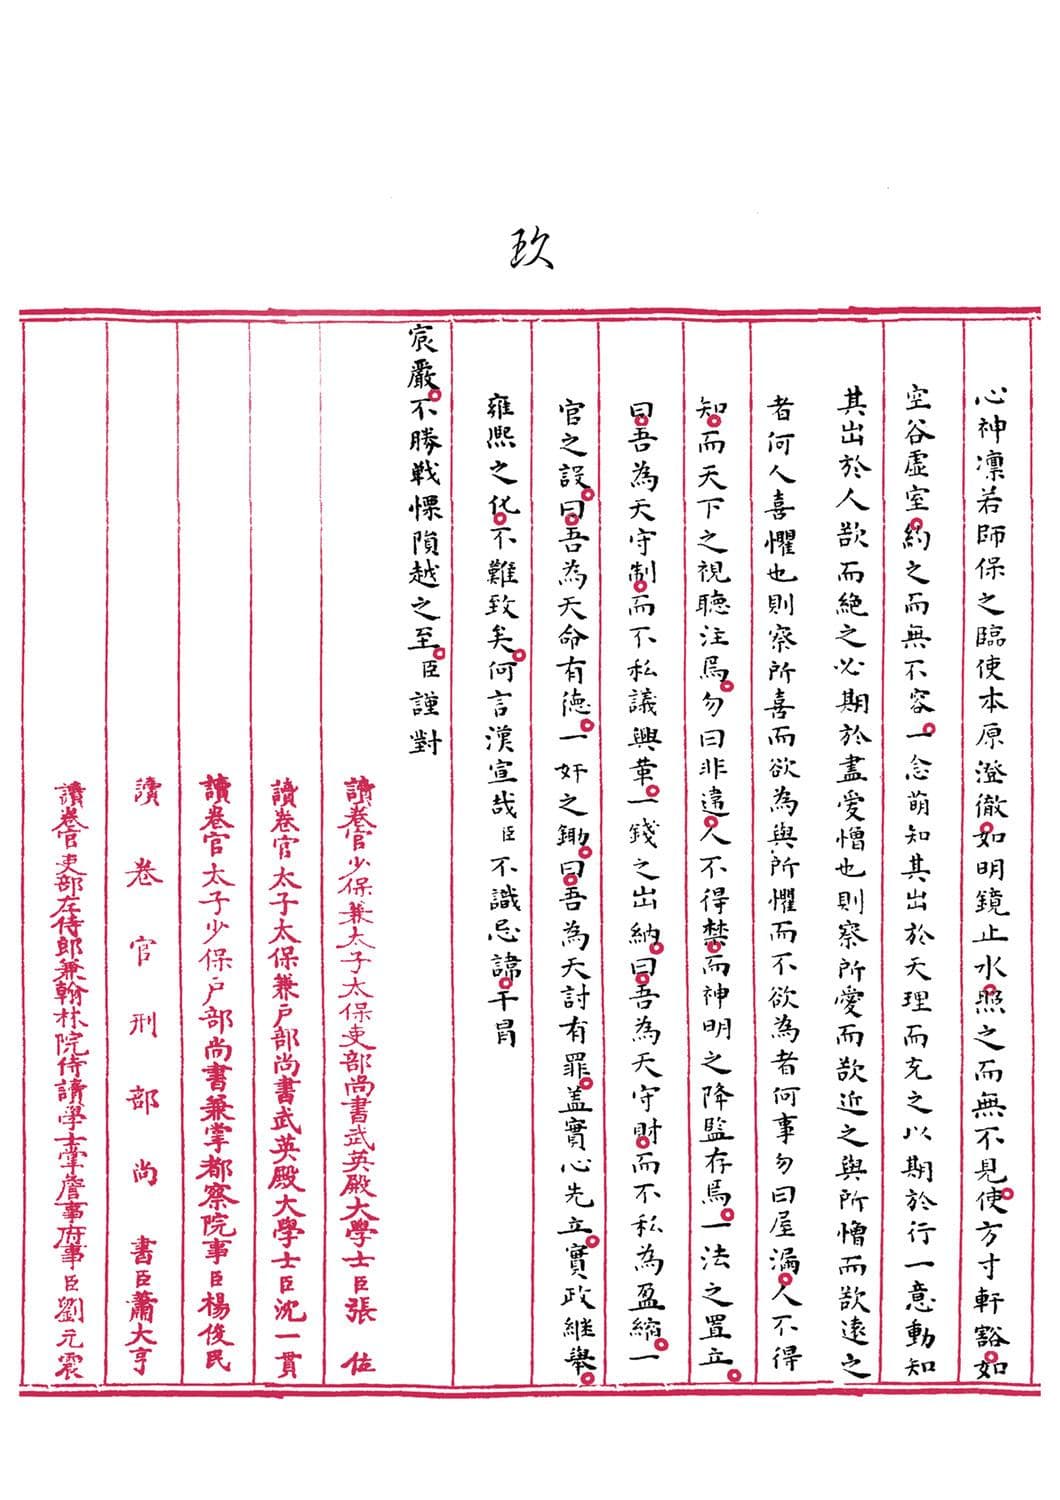 玖
心神凜若師保之臨使本原澄徹如明鏡止水照之而無不見使方寸軒豁如
空谷虛室約之而無不容一念萌知其出於天理而充之以期於行一意動知
其出於人欲而絶之必期於盡愛憎也則察所愛而欲近之與所憎而欲遠之
者何人喜懼也則察所喜而欲為與所懼而不欲為者何事勿曰屋漏人不得
知而天下之視聽注焉勿曰非違人不得禁而神明之降監存焉一法之置立
曰吾為天守制而不私議興革一錢之出納曰吾為天守財而不私為盈縮一
官之設曰吾為天命有德一奸之鋤曰吾為天討有罪盖實心先立實政継舉
雍熙之化不難致矣何言漢宣哉臣不識忌諱干冐
宸嚴不勝戰慄隕越之至臣謹對
讀卷官少保兼太子太保吏部尚書武英殿大學士臣張位
讀卷官太子太保兼户部尚書武英殿大學士臣沈一貫
讀卷官太子少保户部尚書兼掌都察院事臣楊俊民
讀卷官刑部尚書臣蕭大亨
讀卷官吏部左侍郎兼翰林院侍讀學士掌詹事府事臣劉元震